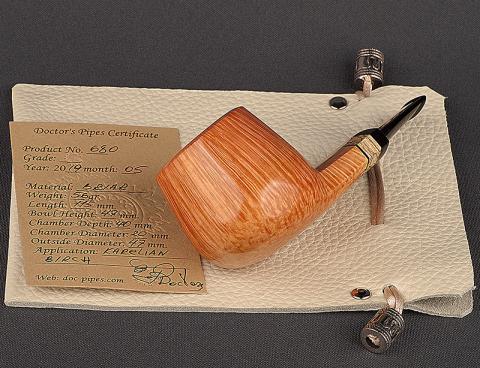 Doctor's Pipes Certificate
Product No. 680
Grade:
Year: 2019 month: 05
Material: BRIAR
Weight: 56gr.
Length: 115 mm.
Bowl Height: 49 mm.
Chamber Depth: 40 mm.
Chamber Diameter: 20 mm.
Outside Diameter: 47 mm.
Application: KARELIAN
BIRCH
Web: doc-pipes.com Doctor